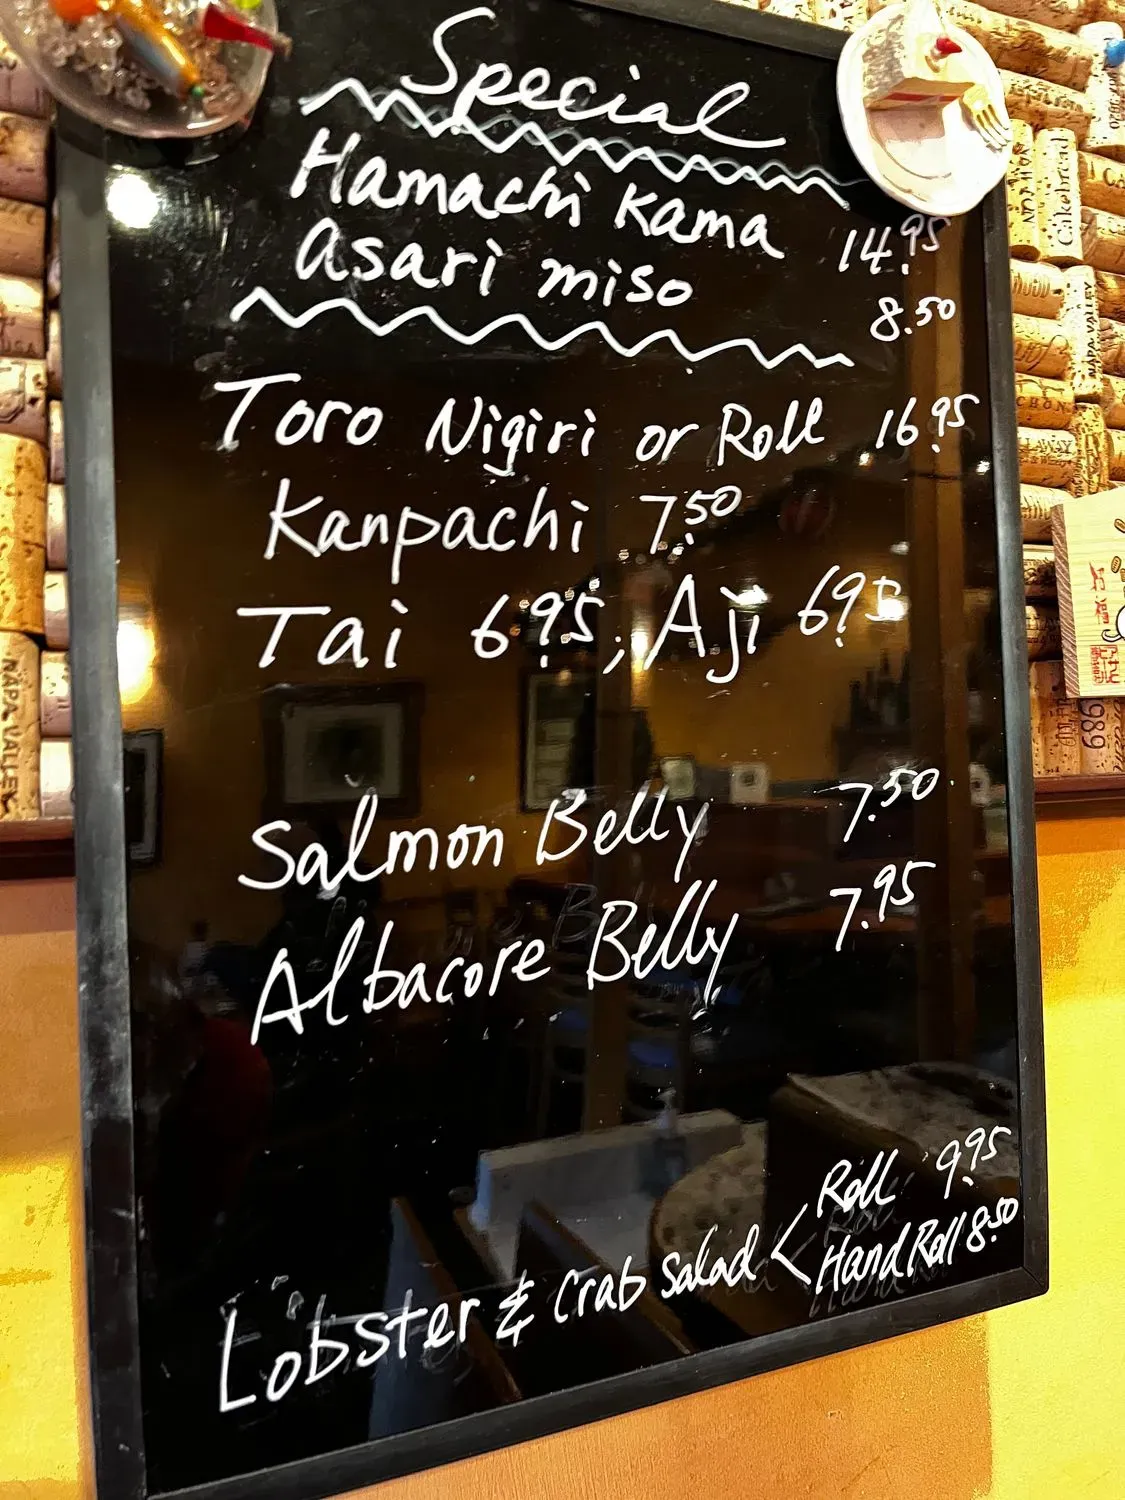 Special
Hamachi Kama 14.95
asari miso 8.50
Toro Nigiri or Roll 16.95
Kanpachi 7.50
Tai 6.95; Aji 6.95
Salmon Belly 7.50
Albacore Belly 7.95
Roll 9.95
Lobster & Crab Salad < Hand Roll 8.50
Cakebread
NAPA VALLEY
NAPA VALLEY
1989